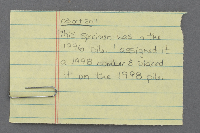 This specimen was in the
1996 pile. I assigned it
a 1998 number & placed
it on the 1998 pile.